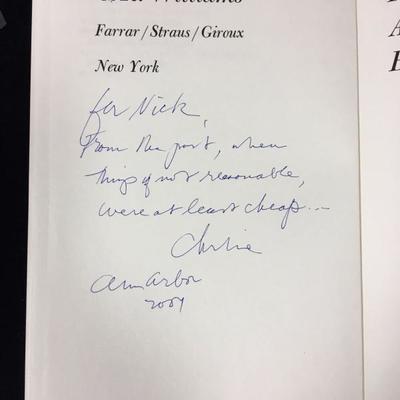 Williams
Farrar/Straus/Giroux
New York
for Nick,
From the past, when
things if not reasonable,
were at least cheap...
Ann Arbor
2007